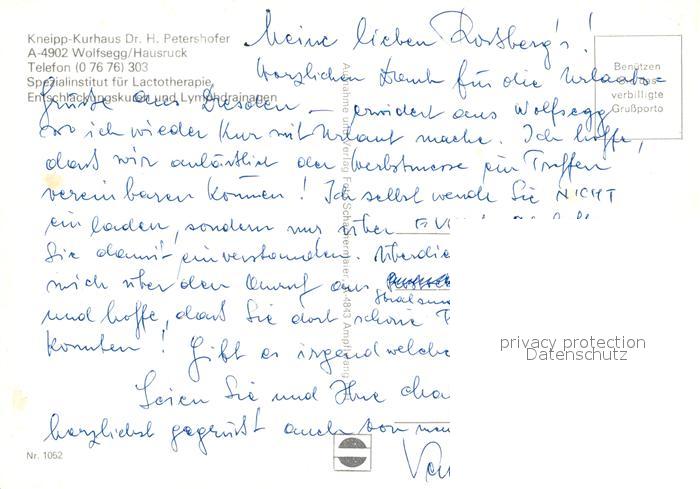 Kneipp-Kurhaus Dr. H. Petershofer
A-4902 Wolfsegg/Hausruck
Telefon (0 76 76) 303
Spezialinstitut für Lactotherapie,
Entschlackungskuren und Lymphdrainagen
Meine lieben Rossberg's!
Herzlichen Dank für die Urlaubs-
grüße aus Dresden – erwidert aus Wolfsegg,
wo ich wieder Kur mit Urlaub mache. Ich hoffe,
daß wir anläßlich der Herbstmesse ein Treffen
vereinbaren können! Ich selbst werde Sie NICHT
einladen, sondern nur über
Sie damit einverstanden. Überdie
mich über den Anruf aus
Stralsun
und hoffe, daß Sie dort schöne
konnten! Gibt es irgendwelche
Seien Sie und Ihre
herzlichst gegrüßt auch von
Benützen
verbilligte
Grußporto
Aufnahme und Verlag Foto Schachermaier, A-4843 Ampflwang
privacy protection
Datenschutz
Nr. 1052